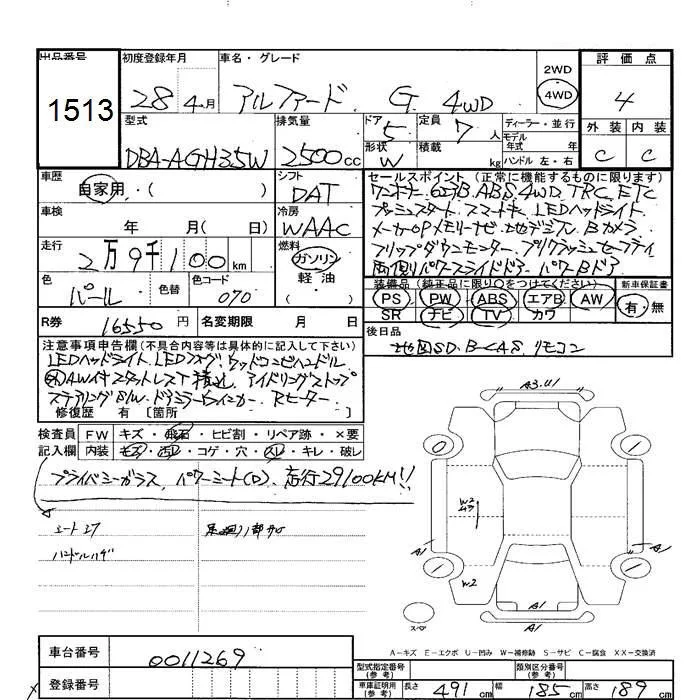 出品番号 初度登録年月 車名・グレード 評価点
1513 28年 4月 アルファード G 4WD 2WD 4WD 4
型式 排気量 ドア 定員 ディーラー・並行 外装 内装
DBA-AGH35W 2500cc 5 7人 モデル年式 年 C C
形状 W 積載 kg ハンドル 左・右
車歴 シフト セールスポイント (正常に機能するものに限ります)
自家用・( ) DAT ワンオーナー 620B ABS 4WD TRC ETC
車検 冷房 プッシュスタート スマートキー LEDヘッドライト
年 月( 日) WAAC メーカーOPメモリーナビ 地デジ Bカメラ
走行 燃料 フリップダウンモニター プリクラッシュセーフティ
2万9千100km ガソリン 軽油 ( ) 両側パワースライドドア パワーBドア
色 色替 色コード 装備品 (純正品に限り○をつけてください) 新車保証書
パール 070 PS PW ABS エアB AW 有・無
SR ナビ TV カワ
R券 16550円 名変期限 月 日 後日品
地図SD. B-CAS. リモコン
注意事項申告欄(不具合内容等は具体的に記入して下さい)
LEDヘッドライト. LEDフォグ. ウッドコンビハンドル
AW付スタットレスT積込 アイドリングストップ
ステアリングS/W. ドアミラーウインカー. Rヒーター
修復歴 有 〔箇所
検査員 FW キズ・飛石・ヒビ割・リペア跡・×要
記入欄 内装 キズ・汚レ・コゲ・穴・スレ・キレ・破レ
プライバシーガラス、パワーシート(D)、走行29100KM!!
シートスレ
ハンドルハゲ
A3.U1
W2
W2
A1
A1
A1
スペア
A-キズ E-エクボ U-凹み W-補修跡 S-サビ C-腐食 XX-交換済
車台番号 0011269
型式指定番号 (参考) 類別区分番号 (参考)
登録番号 車庫証明用 (参考) 長さ 491cm 幅 185cm 高さ 189cm